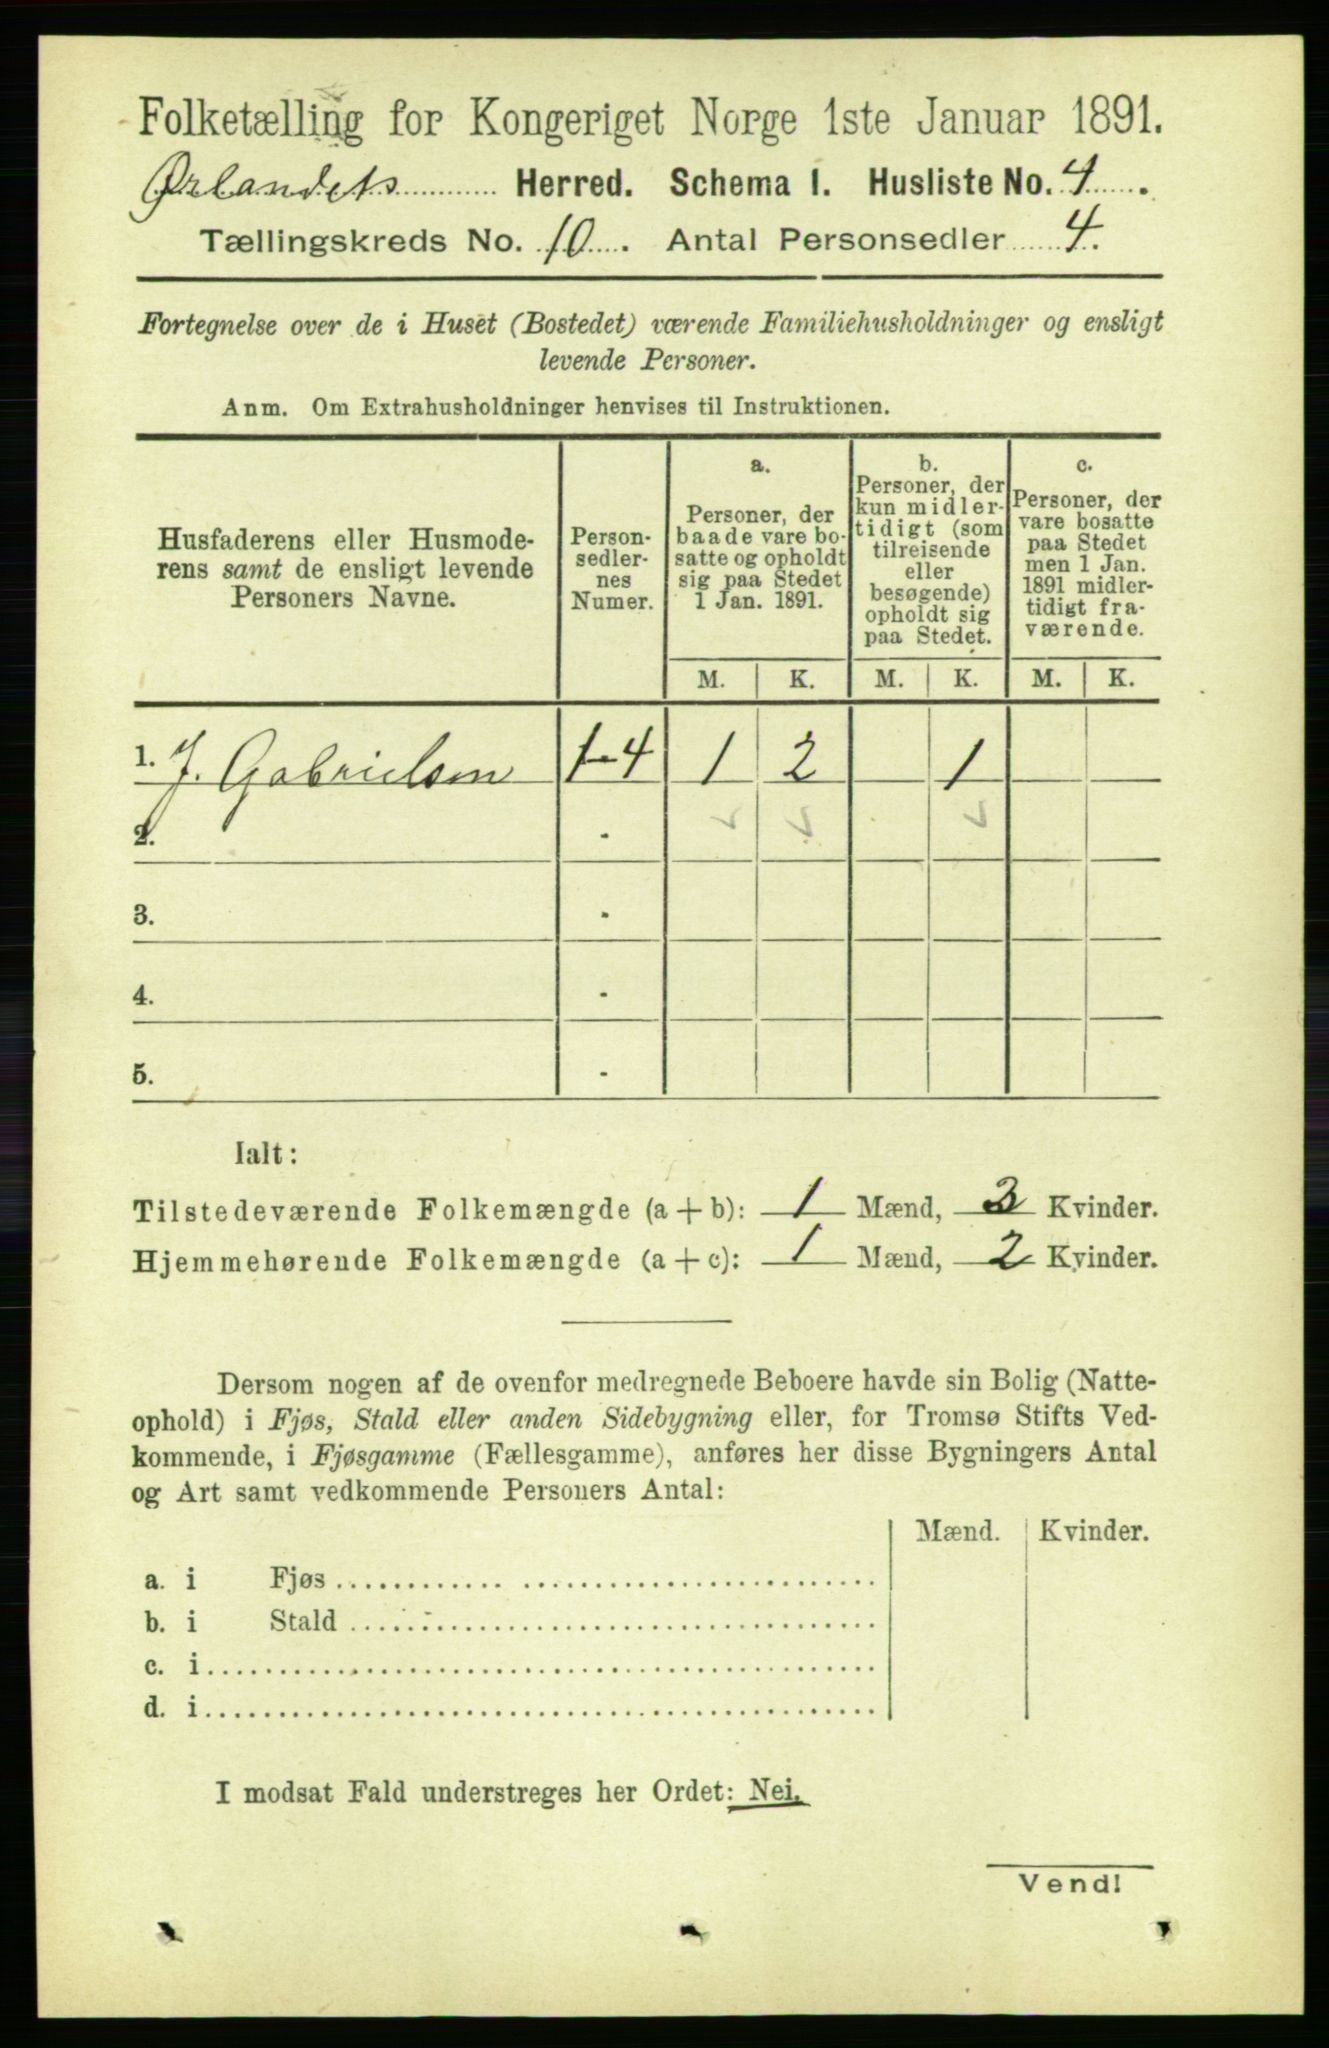 Folketælling for Kongeriget Norge 1ste Januar 1891.
Ørlandets Herred. Schema I. Husliste No. 4.
Tællingskreds No. 10. Antal Personsedler 4.
Fortegnelse over de i Huset (Bostedet) værende Familiehusholdninger og ensligt
levende Personer.
Anm. Om Extrahusholdninger henvises til Instruktionen.
Husfaderens eller Husmode-
rens samt de ensligt levende
Personers Navne.
Person-
sedler-
nes
Numer.
a.
Personer, der
baade vare bo-
satte og opholdt
sig paa Stedet
1 Jan. 1891.
b.
Personer, der
kun midler-
tidigt (som
tilreisende
eller
besøgende)
opholdt sig
paa Stedet.
c.
Personer, der
vare bosatte
paa Stedet
men 1 Jan.
1891 midler-
tidigt fra-
værende.
M. K. M. K. M. K.
1. J. Gabrielsen 1-4 1 2 1
2. -
3. -
4. -
5. -
Ialt:
Tilstedeværende Folkemængde (a + b): 1 Mænd, 3 Kvinder.
Hjemmehørende Folkemængde (a + c): 1 Mænd, 2 Kvinder.
Dersom nogen af de ovenfor medregnede Beboere havde sin Bolig (Natte-
ophold) i Fjøs, Stald eller anden Sidebygning eller, for Tromsø Stifts Ved-
kommende, i Fjøsgamme (Fællesgamme), anføres her disse Bygningers Antal
og Art samt vedkommende Personers Antal:
Mænd. Kvinder.
a. i Fjøs
b. i Stald
c. i
d. i
I modsat Fald understreges her Ordet: Nei.
Vend!